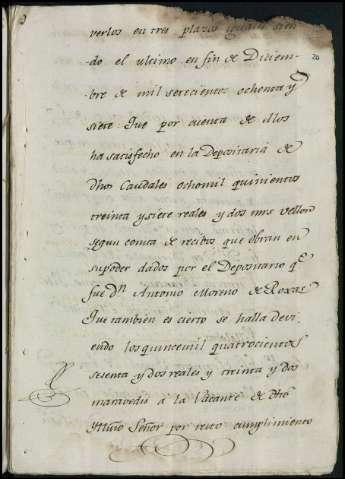 verlos en tres plazos iguales sien-
do el ultimo en fin de Diciem-
20
-bre de mil setecientos ochenta y
siete. Que por cuenta de ellos
ha satisfecho en la Depositaria de
dhos Caudales ochomil quinientos
treinta y siete reales y dos mrs vellon
segun consta de recibos que obran en
su poder dados por el Depositario qe
fue Dn Antonio Moreno de Roxas
Que tambien es cierto se halla devi-
endo los quincemil quatrocientos
sesenta y dos reales y treinta y dos
maravedis á la Vacante de dho
Yllmo Señor por resto cumplimiento